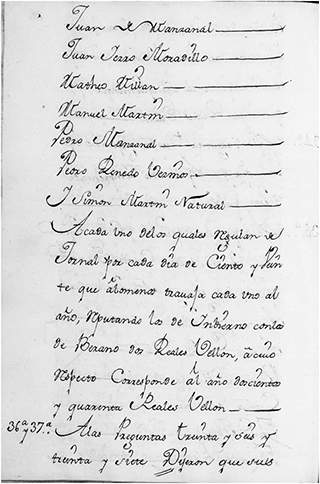 Juan de Manzanal
Juan Ferro Moradillo
Matheo Millan
Manuel Martin
Pedro Manzanal
Pedro Renedo Vezinos
Y Simon Martin Natural
Acada vno delos quales Regulan de
Jornal por cada dia de Ciento y Vein
te que âlomenos travaja cada vno al
año, Reputando los de Inbierno conlos
de Berano dos Reales Vellon, â cuio
Respecto Corresponde al año doscientos
y quarenta Reales Vellon
36ª y 37ª Alas Preguntas treinta y seis y
treinta y siete Dijeron que